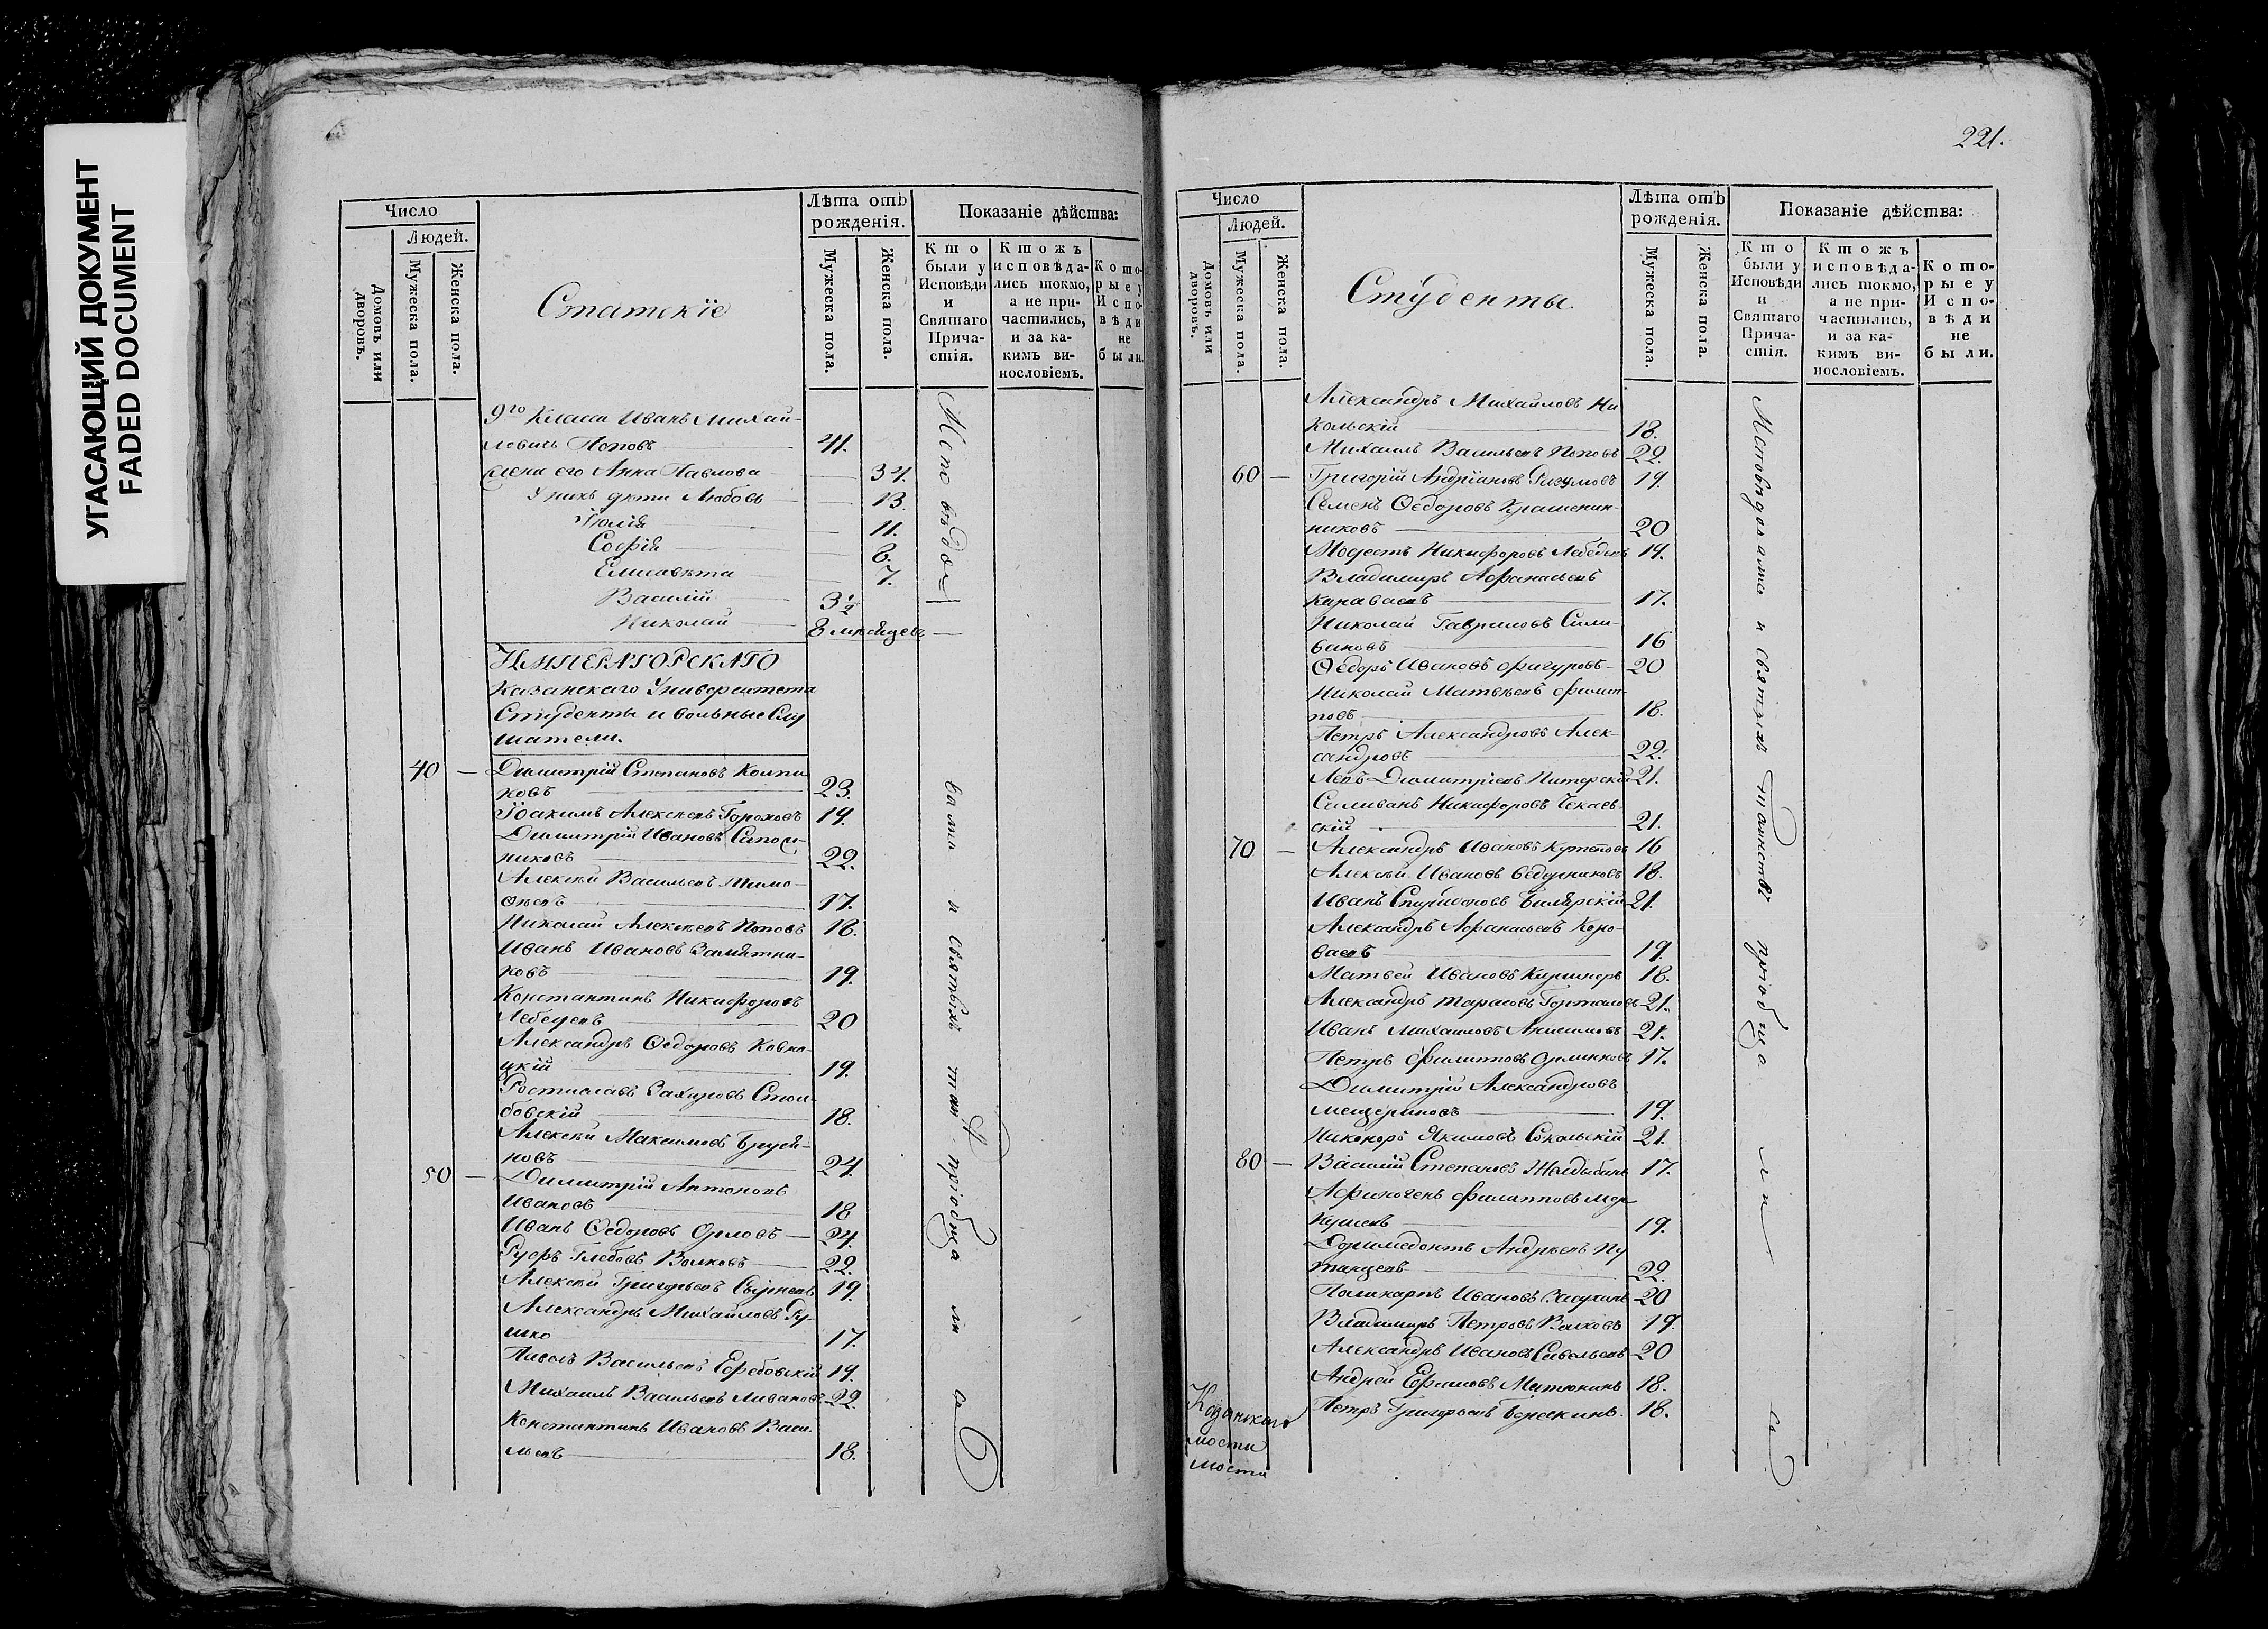 УГАСАЮЩИЙ ДОКУМЕНТ
FADED DOCUMENT
Число
Людей.
Домовъ или дворовъ.
Мужеска пола.
Женска пола.
Статскіе
Лѣта отъ
рожденія.
Мужеска пола.
Женска пола.
Показаніе дѣйства:
Кто
были у
Исповѣди
и
Святаго
Прича-
стія.
Ктожъ
исповѣда-
лись токмо,
а не при-
частились,
и за ка-
кимъ ви-
нословіемъ.
Кото-
рые у
Испо-
вѣди
не
были.
9го Класса Иванъ Михай-
ловичь Поповъ 41.
жена его Анна Павлова 34.
У нихъ дѣти Любовь 13.
Юлія 11.
Софія 8.
Елисавета 7.
Василій 3½
Николай 8 мѣсяцевъ
ИМПЕРАТОРСКАГО
Казанскаго Университета
Студенты и вольные Слу
шатели.
40 — Димитрій Степановъ
ковъ 23.
Іоакимъ Алексѣевъ Гороховъ 19.
Димитрій Ивановъ Сапож-
никовъ 22.
Алексѣй Васильевъ Тимо-
ѳеевъ 17.
Николай Алексѣевъ Поповъ 18.
Иванъ Ивановъ Замятни-
ковъ 19.
Константинъ Никифоровъ
Лебедевъ 20
Александръ Ѳедоровъ Ковна-
цкій 19.
Ростиславъ Захаровъ Стол-
бовскій 18.
Алексѣй Максимовъ Бруся-
новъ 24.
50 — Димитрій Антоновъ
Ивановъ 18
Иванъ Ѳедоровъ Орловъ 24.
Глебовъ Волковъ 22.
Алексѣй Григорьевъ 19.
Александръ Михайловъ Ру-
шко 17.
Павелъ Васильевъ 19.
Михаилъ Васильевъ Ливановъ 22.
Константинъ Ивановъ Васи-
льевъ 18.
Исповѣдовались и святыхъ таин. пріобщались
221.
Число
Людей.
Домовъ или дворовъ.
Мужеска пола.
Женска пола.
Студенты.
Лѣта отъ
рожденія.
Мужеска пола.
Женска пола.
Показаніе дѣйства:
Кто
были у
Исповѣди
и
Святаго
Прича-
стія.
Ктожъ
исповѣда-
лись токмо,
а не при-
частились,
и за ка-
кимъ ви-
нословіемъ.
Кото-
рые у
Испо-
вѣди
не
были.
Александръ Михайловъ Ни
кольскій 18.
Михаилъ Васильевъ Поповъ 22.
60 — Григорій Андріановъ Разумовъ 19.
Семенъ Ѳедоровъ Крашенин-
никовъ 20
Модестъ Никифоровъ Лебедевъ 19.
Владимиръ Афанасьевъ
Караваевъ 17.
Николай Гавриловъ Сели-
вановъ 16
Ѳедоръ Ивановъ Фигуровъ 20
Николай Матвѣевъ Филип-
повъ 18.
Петръ Александровъ Алек-
сандровъ 22.
Левъ Димитріевъ Питерскій 21.
Селиванъ Никифоровъ Чекаев-
скій 21.
70 — Александръ Ивановъ 16
Алексѣй Ивановъ 18.
Иванъ Спиридоновъ Билярскій 21.
Александръ Афанасьевъ Кара-
ваевъ 19.
Матвей Ивановъ 18.
Александръ Тарасовъ Горталовъ 21.
Иванъ Михайловъ Анисимовъ 21.
Петръ Филипповъ Орлинковъ 17.
Димитрій Александровъ
Мещериновъ 19.
Никоноръ Якимовъ Сокольскій 21.
80 — Василій Степановъ Жалдыбинъ 17.
Афиногенъ Филипповъ Мер
кушевъ 19.
Доримедонтъ Андреевъ Пу
танцевъ 22.
Поликарпъ Ивановъ Засухинъ 20
Владимиръ Петровъ Волковъ 19.
Александръ Ивановъ Савельевъ 20
Андрей Ефимовъ Матюнинъ 18.
Петръ Григорьевъ Березкинъ. 18.
Исповѣдовались и святыхъ таинствъ пріобщались